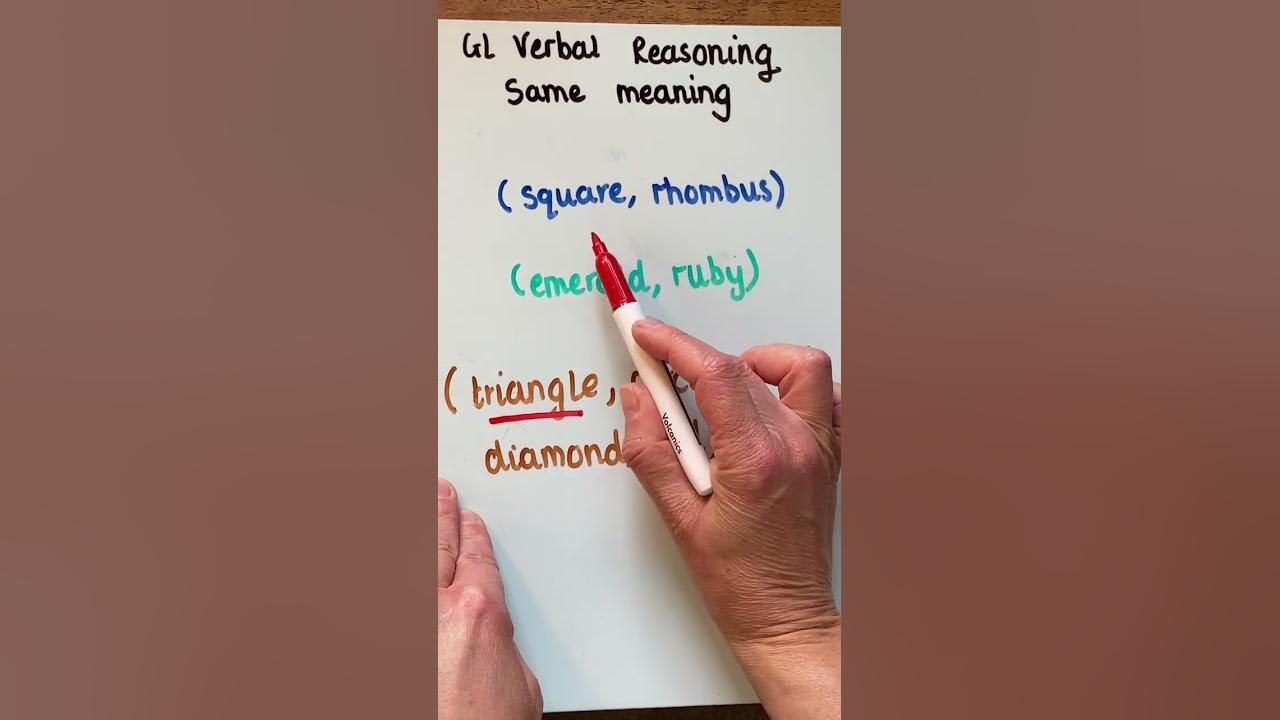 GL Verbal Reasoning
Same meaning
(square, rhombus)
ruby)
(triangle,
diamond
Volcanics